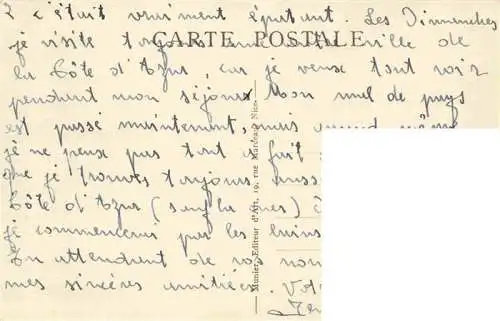 2 c'était vraiment épatant. Les Dimanches
CARTE POSTALE
je visite toujours une autre ville de
la Côte d'Azur, car je veux tout voir
pendant mon séjour. Mon mal de pays
est passé maintenant, mais quand même
je ne peux pas tout à fait
que je trouves toujours auss
Côte d'Azur (sauf la
je commencerai par les bains
En attendant de vos nou
mes sincères amitiées. Vot
Munier, Editeur d'Art, 19, rue Maréchal, Nice